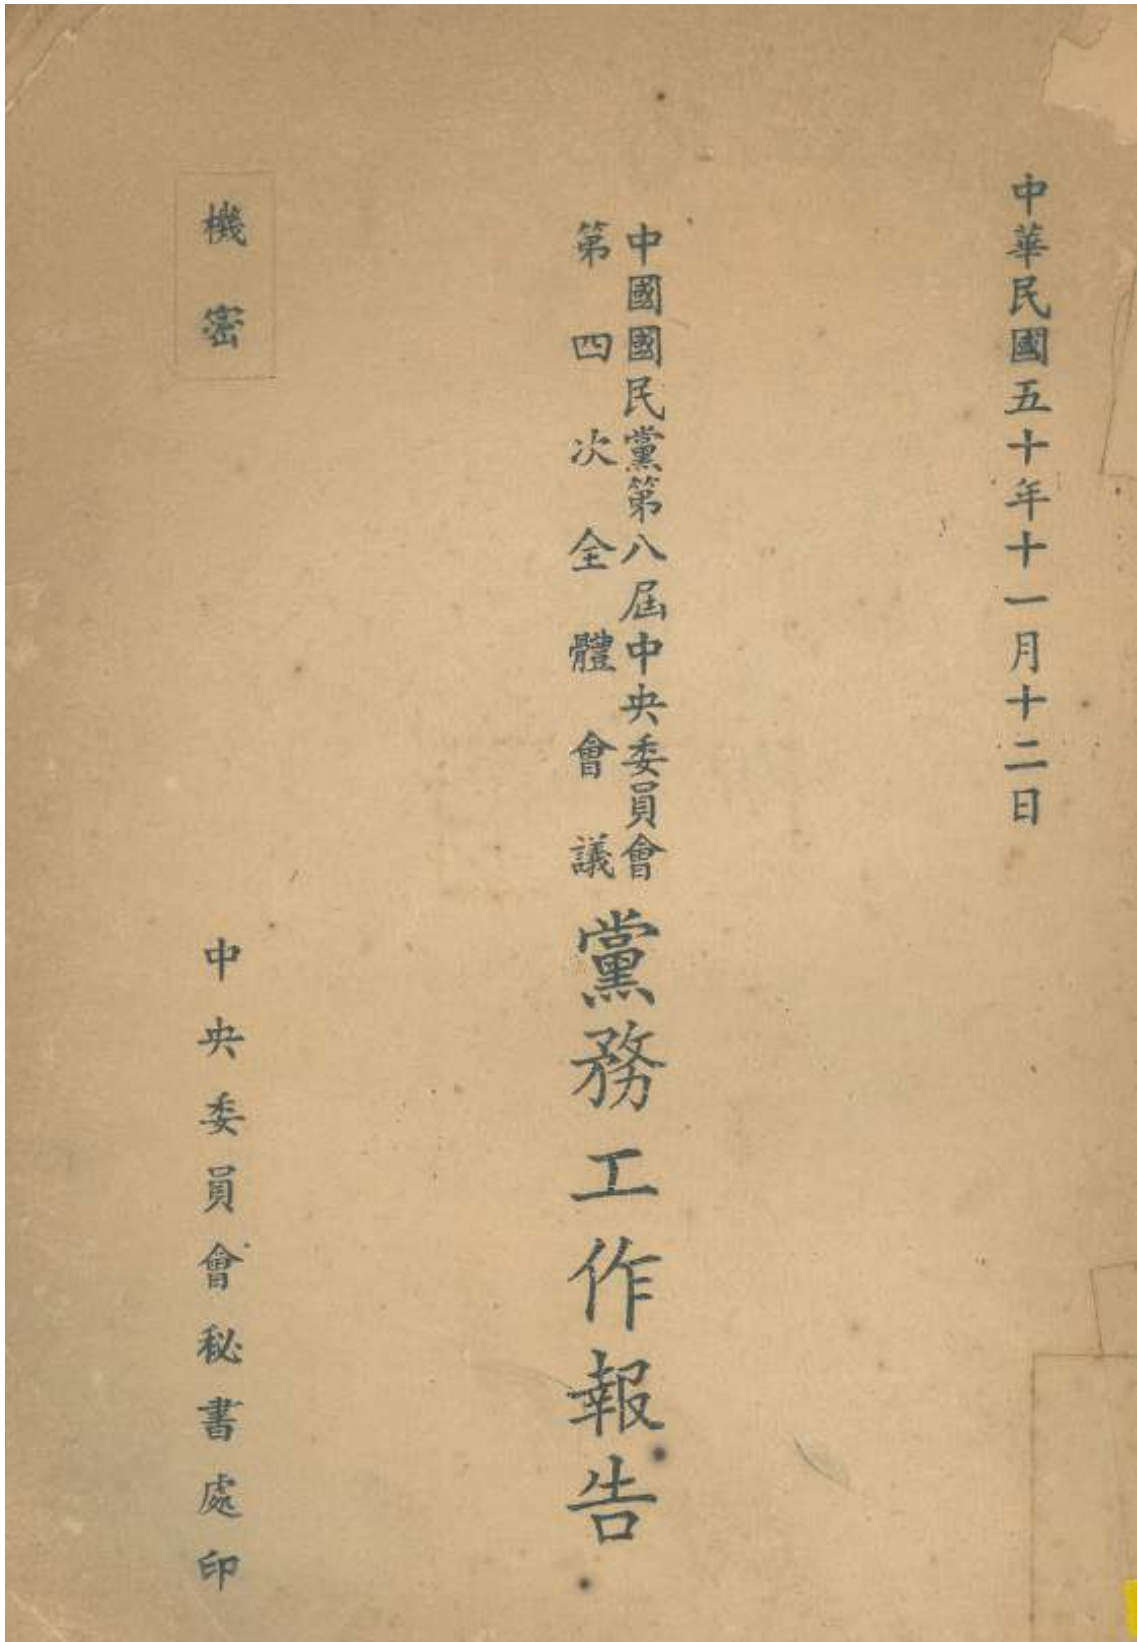 中華民國五十年十一月十二日
中國國民黨第八屆中央委員會
第四次全體會議
黨務工作報告
機密
中央委員會秘書處印